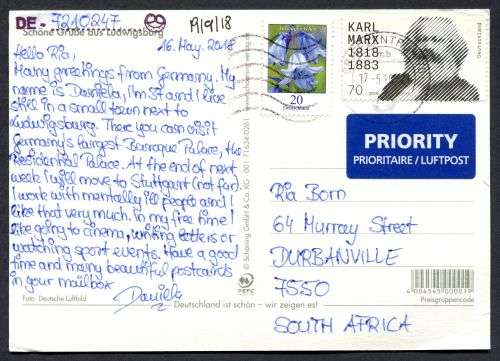 DE - 7210247
19/9/18
Schöne Grüße aus Ludwigsburg
16. May. 2018
Hello Ria!
Many greetings from Germany. My
name is Daniela, I'm 37 and I live
still in a small town next to
Ludwigsburg. There you can visit
Germany's largest Barroque Palace, the
Residential Palace. At the end of next
week I will move to Stuttgart (not far).
I work with mentally ill people and I
like that very much. In my free time I
like going to cinema, writing letters or
watching sport events. Have a good
time and many beautiful postcards
in your mailbox
Daniela
Foto: Deutsche Luftbild
Deutschland ist schön – wir zeigen es!
© Schöning GmbH & Co. KG
PEFC
20
Deutschland
KARL
MARX
1818
1883
70
Deutschland
17-5
PRIORITY
PRIORITAIRE / LUFTPOST
Ria Born
64 Murray Street
DURBANVILLE
7550
SOUTH AFRICA
Preisgruppencode